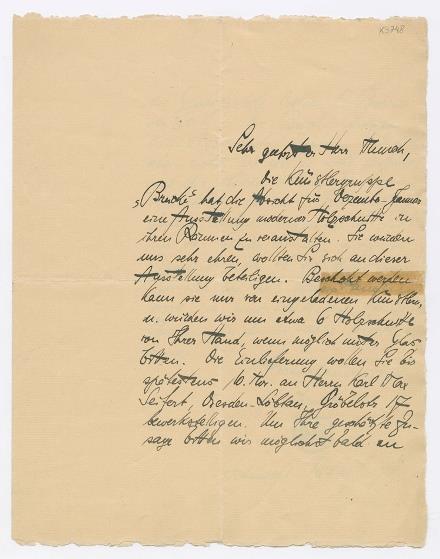 K3748
Sehr geehrter Herr Munch,
die Künstlergruppe
„Brücke" hat die Absicht für Dezember-Januar
eine Ausstellung moderner Holzschnitte in
ihren Räumen zu veranstalten. Sie würden
uns sehr ehren, wollten Sie sich an dieser
Ausstellung beteiligen. Beschickt werden
kann sie nur von eingeladenen Künstlern,
u. würden wir um etwa 6 Holzschnitte
von Ihrer Hand, wenn möglich unter Glas
bitten. Die Einlieferung wollen Sie bis
spätestens 10. Nov. an Herrn Karl Max
Seifert, Dresden-Löbtau, Gröbelstr 17
bewerkstelligen. Um Ihre geschätzte Zu-
sage bitten wir möglichst bald an